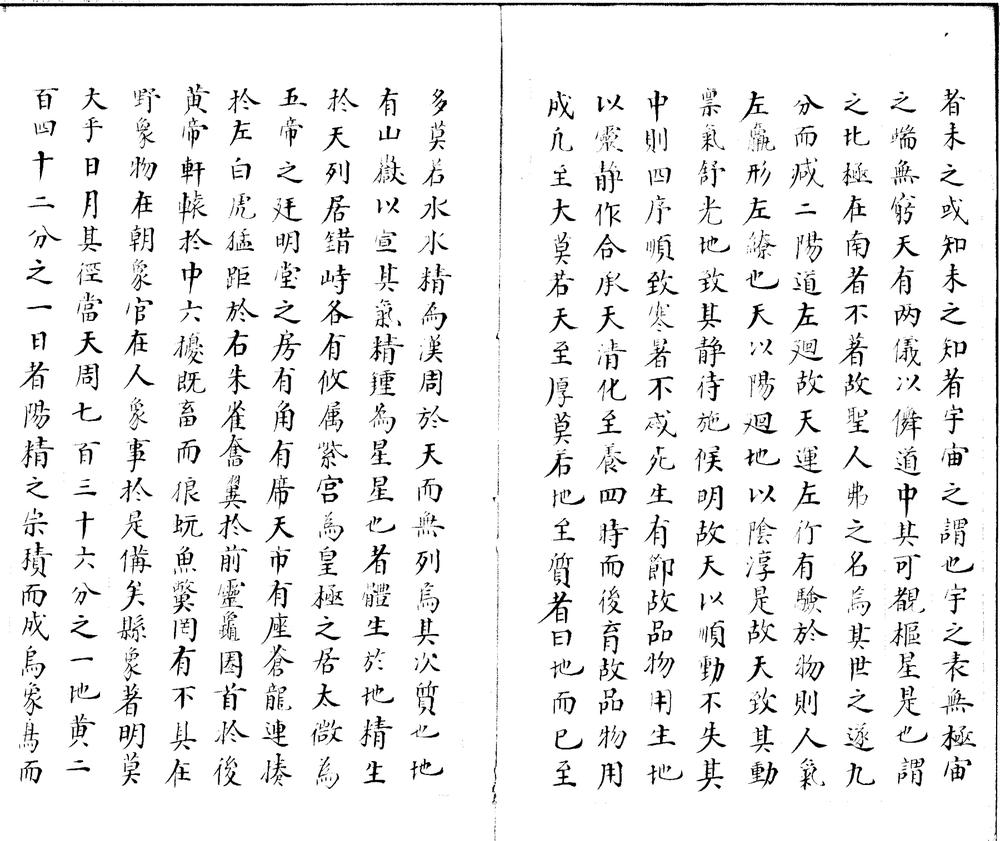 者未之或知未之知者宇宙之謂也宇之表無極宙
之端無窮天有两儀以儛道中其可覩樞星是也謂
之北極在南者不著故聖人弗之名焉其世之遂九
分而减二陽道左廻故天運左行有驗於物則人氣
左羸形左繚也天以陽廻地以陰淳是故天致其動
禀氣舒光地致其静待施候明故天以順動不失其
中則四序順致寒暑不忒死生有節故品物用生地
以靈静作合承天清化至養四時而後育故品物用
成凢至大莫若天至厚莫若地至質者曰地而已至
多莫若水水精為漢周於天而無列焉其次質也地
有山嶽以宣其氣精鍾為星星也者體生於地精生
於天列居錯峙各有攸属紫宫為皇極之居太微為
五帝之廷明堂之房有角有席天市有座蒼龍連揍
於左白虎猛距於右朱雀奮翼於前靈龜圏首於後
黄帝軒轅於中六擾既畜而狼蚖魚鱉罔有不具在
野象物在朝象官在人象事於是備矣縣象著明莫
大乎日月其徑當天周七百三十六分之一地黄二
百四十二分之一日者陽精之宗積而成烏象烏而